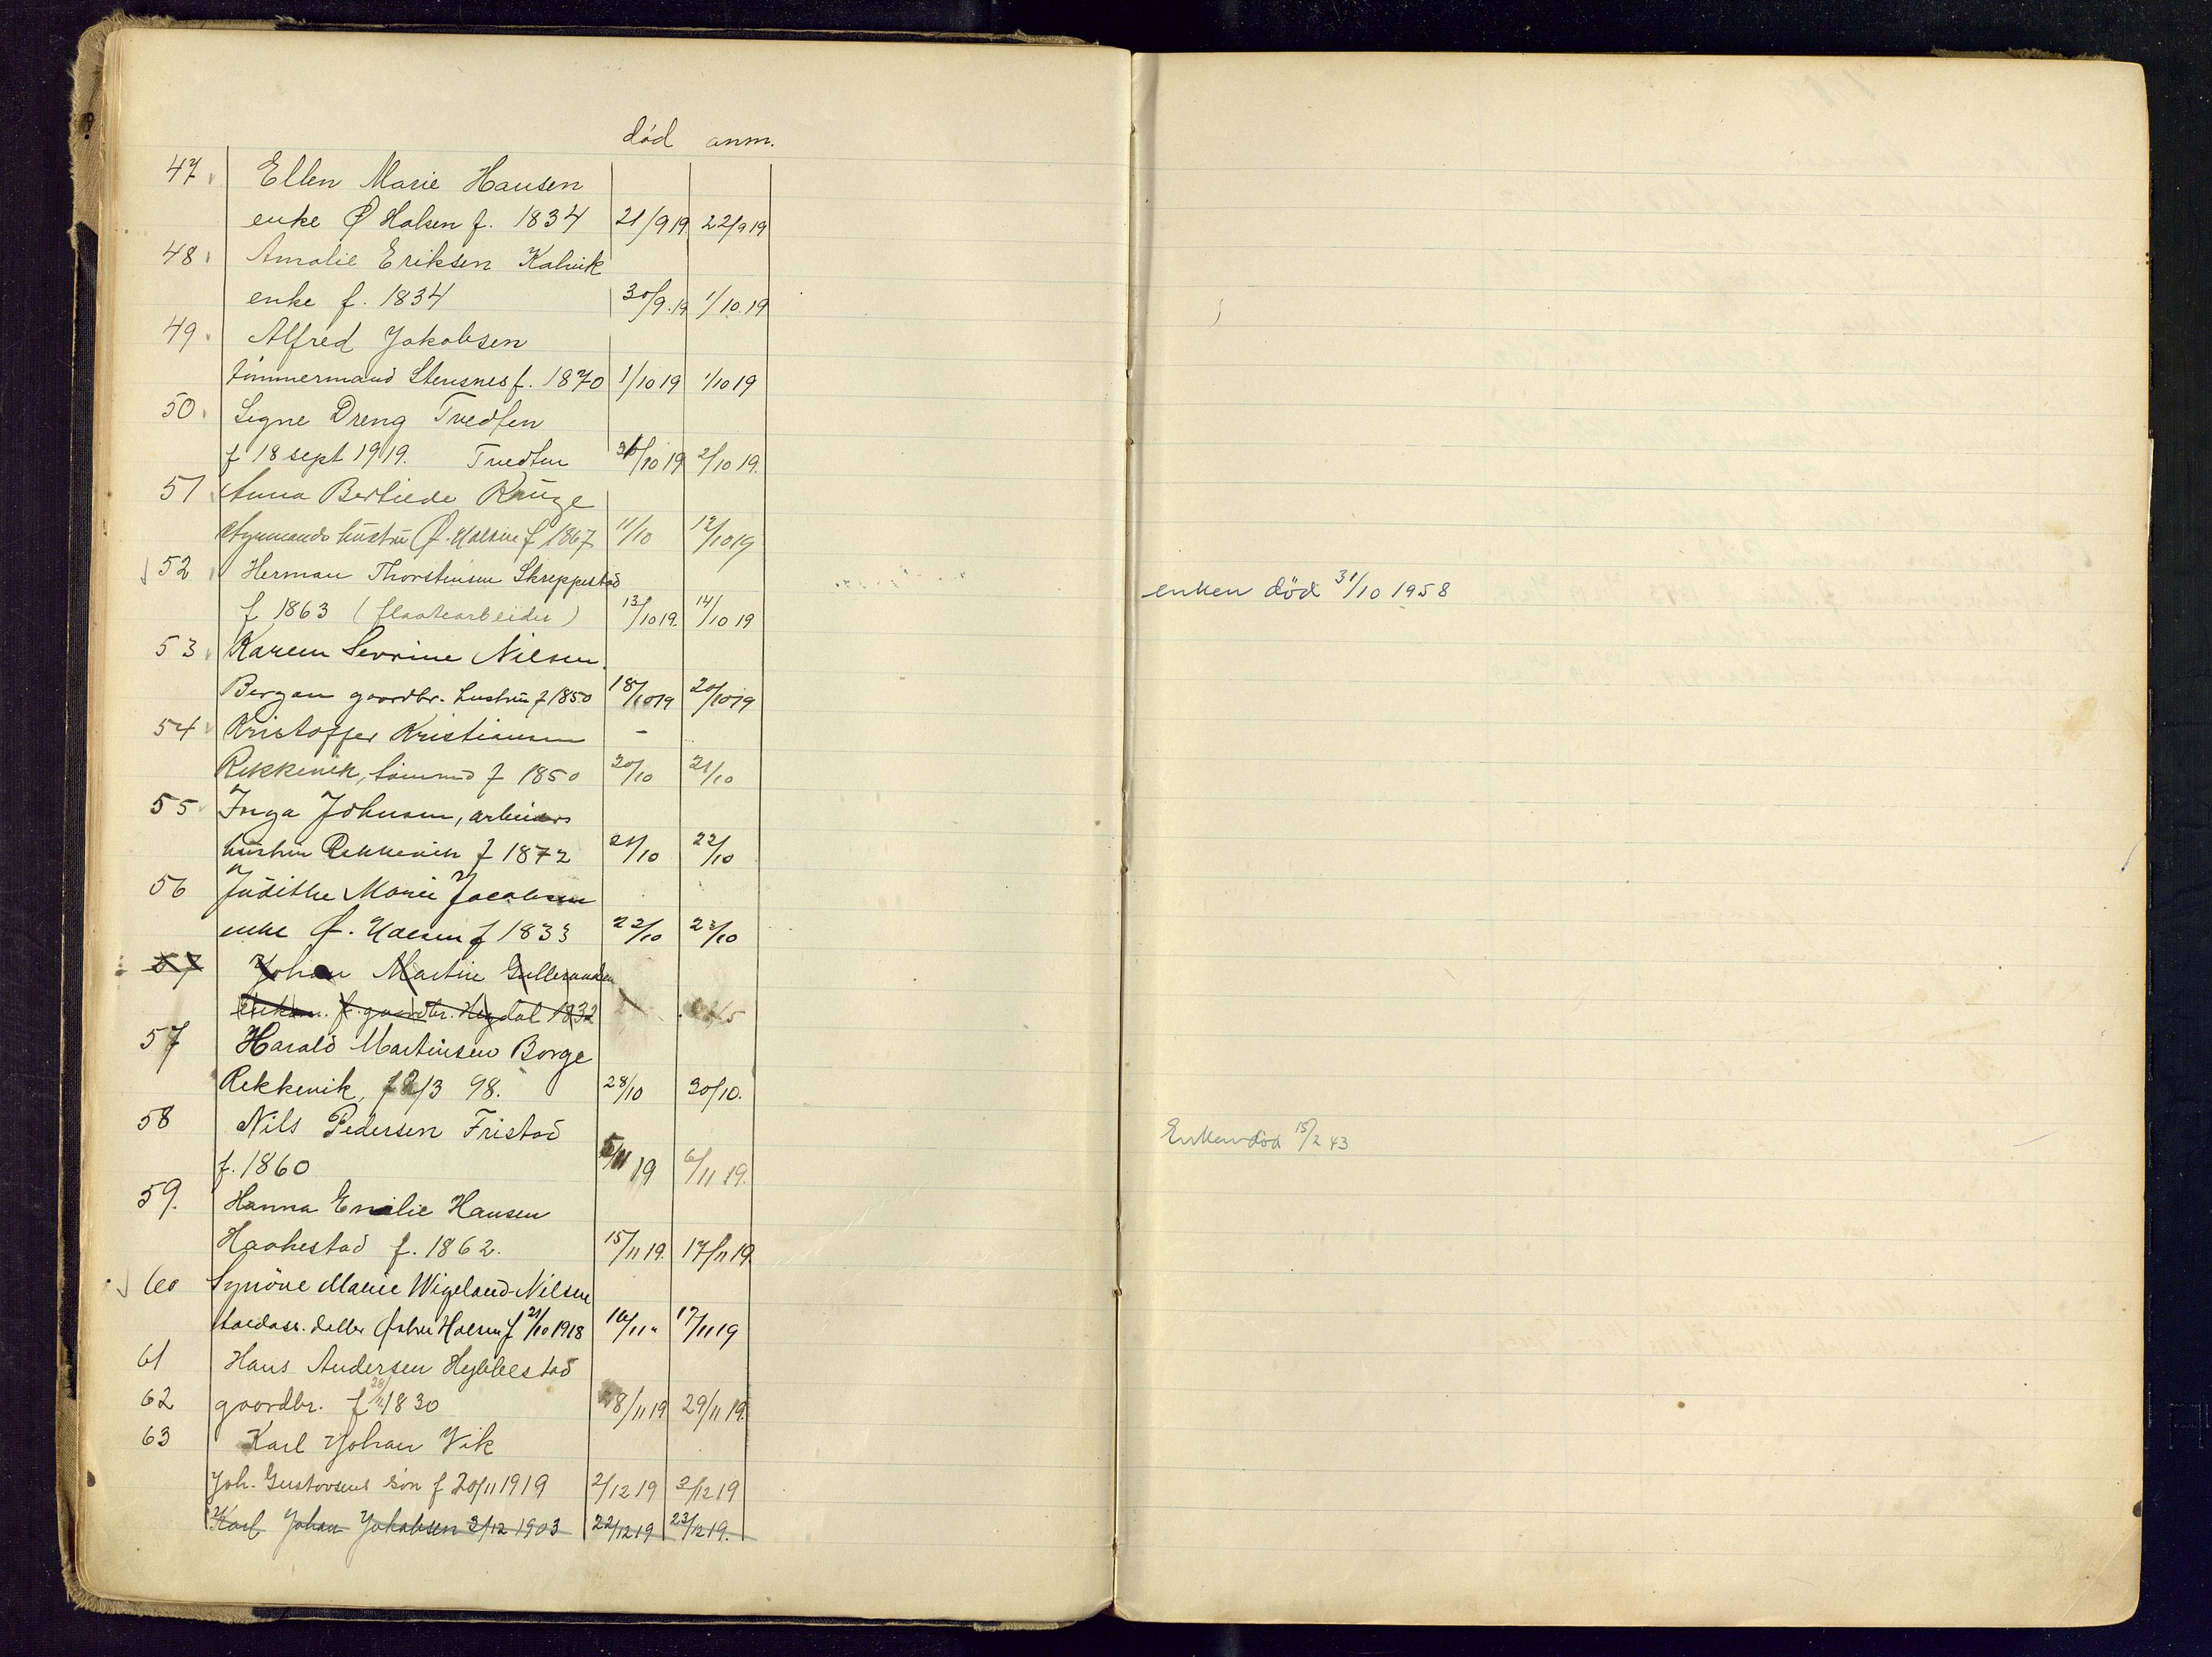 død anm.
47 Ellen Marie Hansen
enke Ø Halsen f. 1834 21/9 19 22/9 19
48. Amalie Eriksen Kalvik
enke f. 1834 30/9. 19 1/10. 19
49. Alfred Jakobsen
tömmermand Stensnes f. 1870 1/10 19 1/10 19
50. Signe Dreng Tvedten
f 18 sept 1919. Tvedten /10 19 2/10 19.
51 Anna Bertiede Krüze
Styrmands hüstrü Ø. Halsen f 1867 11/10 12/10 19
52 Herman Thorstensen Skreppestad
f 1863 (flaatearbeider) 13/10 19. 14/10 19
enken död 31/10 1958
53 Karen Sevrine Nilsen.
Bergan gaardbr. hustrü f 1850 18/10 19 20/10 19
54 Kristoffer Kristiansen -
Rekkevik, tömmd f 1850 20/10 21/10
55 Inga Johnsen, arbeiders
hüstrü Rekkevik f 1872 21/10 22/10
56 Jüdithe Marie Jacobsen
enke Ø. Halsen f 1833 22/10 23/10
57 Johan Martin Gulbrandsen
f. gaardbr. Hegdal 1832
57 Harald Martinsen Borge
Rekkevik, f 2/3 98. 28/10 30/10.
58 Nils Pedersen Fristad
f. 1860 5/11 19 6/11 19.
Enken död 15/2 43
59. Hanna Emilie Hansen
Haakestad f. 1862. 15/11 19. 17/11 19.
60 Synöve Marie Wigeland-Nilsen
datter Østre Halsen f 21/10 1918 16/11 " 17/11 19
61 Hans Andersen Hybbestad
62 gaardbr. f 28/11 1830 28/11 19 29/11 19.
63 Karl Johan Vik
Joh. Gustavsens sön f 20/11 1919 2/12 19 3/12 19
Karl Johan Jakobsen 3/12 1903 22/12 19 23/12 19.